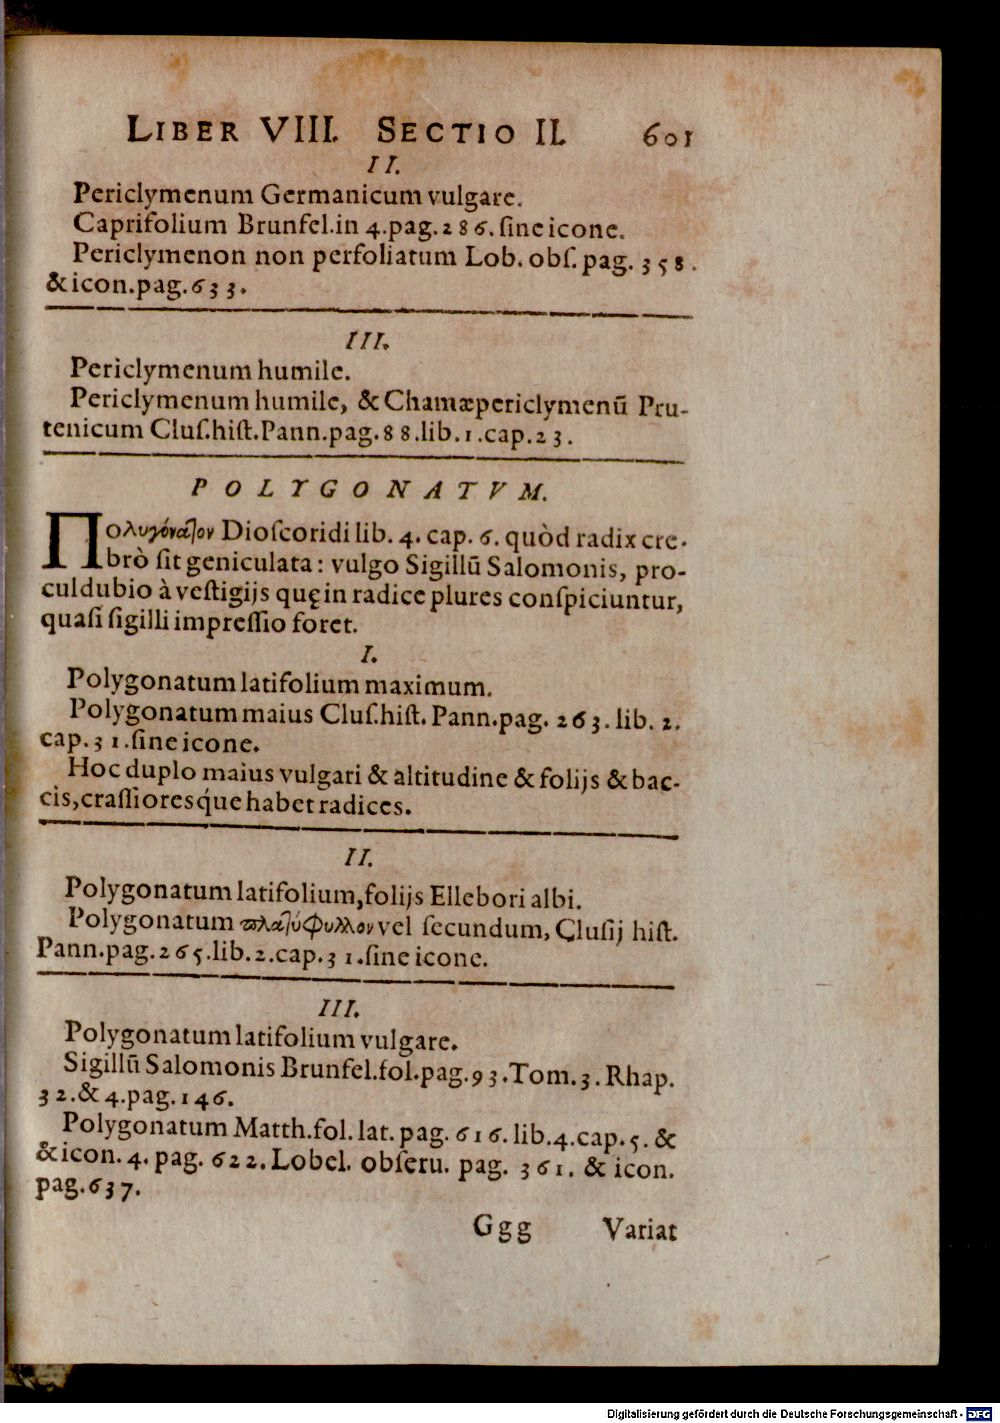 LIBER VIII. SECTIO II. 601
II.
Periclymenum Germanicum vulgare.
Caprifolium Brunfel.in 4.pag.286.ſine icone.
Periclymenon non perfoliatum Lob. obſ. pag. 358.
& icon.pag.633.
III.
Periclymenum humile.
Periclymenum humile, & Chamæpericlymenũ Pru-
tenicum Cluſ.hiſt.Pann.pag.88.lib.1.cap.23.
POLYGONATVM.
Πολυγόναῖον Dioſcoridi lib. 4. cap. 6. quòd radix cre-
brò ſit geniculata: vulgo Sigillũ Salomonis, pro-
culdubio à veſtigijs quę in radice plures conſpiciuntur,
quaſi ſigilli impreſſio foret.
I.
Polygonatum latifolium maximum.
Polygonatum maius Cluſ.hiſt. Pann.pag. 263. lib. 2.
cap.31.ſine icone.
Hoc duplo maius vulgari & altitudine & folijs & bac-
cis,craſſioresq́ue habet radices.
II.
Polygonatum latifolium, folijs Ellebori albi.
Polygonatum πλατύφυλλον vel ſecundum, Cluſij hiſt.
Pann.pag.265.lib.2.cap.31.ſine icone.
III.
Polygonatum latifolium vulgare.
Sigillũ Salomonis Brunfel.fol.pag.93.Tom.3.Rhap.
32.& 4.pag.146.
Polygonatum Matth.fol. lat. pag. 616. lib.4.cap.5. &
& icon. 4. pag. 622. Lobel. obſeru. pag. 361. & icon.
pag.637.
Ggg Variat
Digitalisierung gefördert durch die Deutsche Forschungsgemeinschaft - DFG